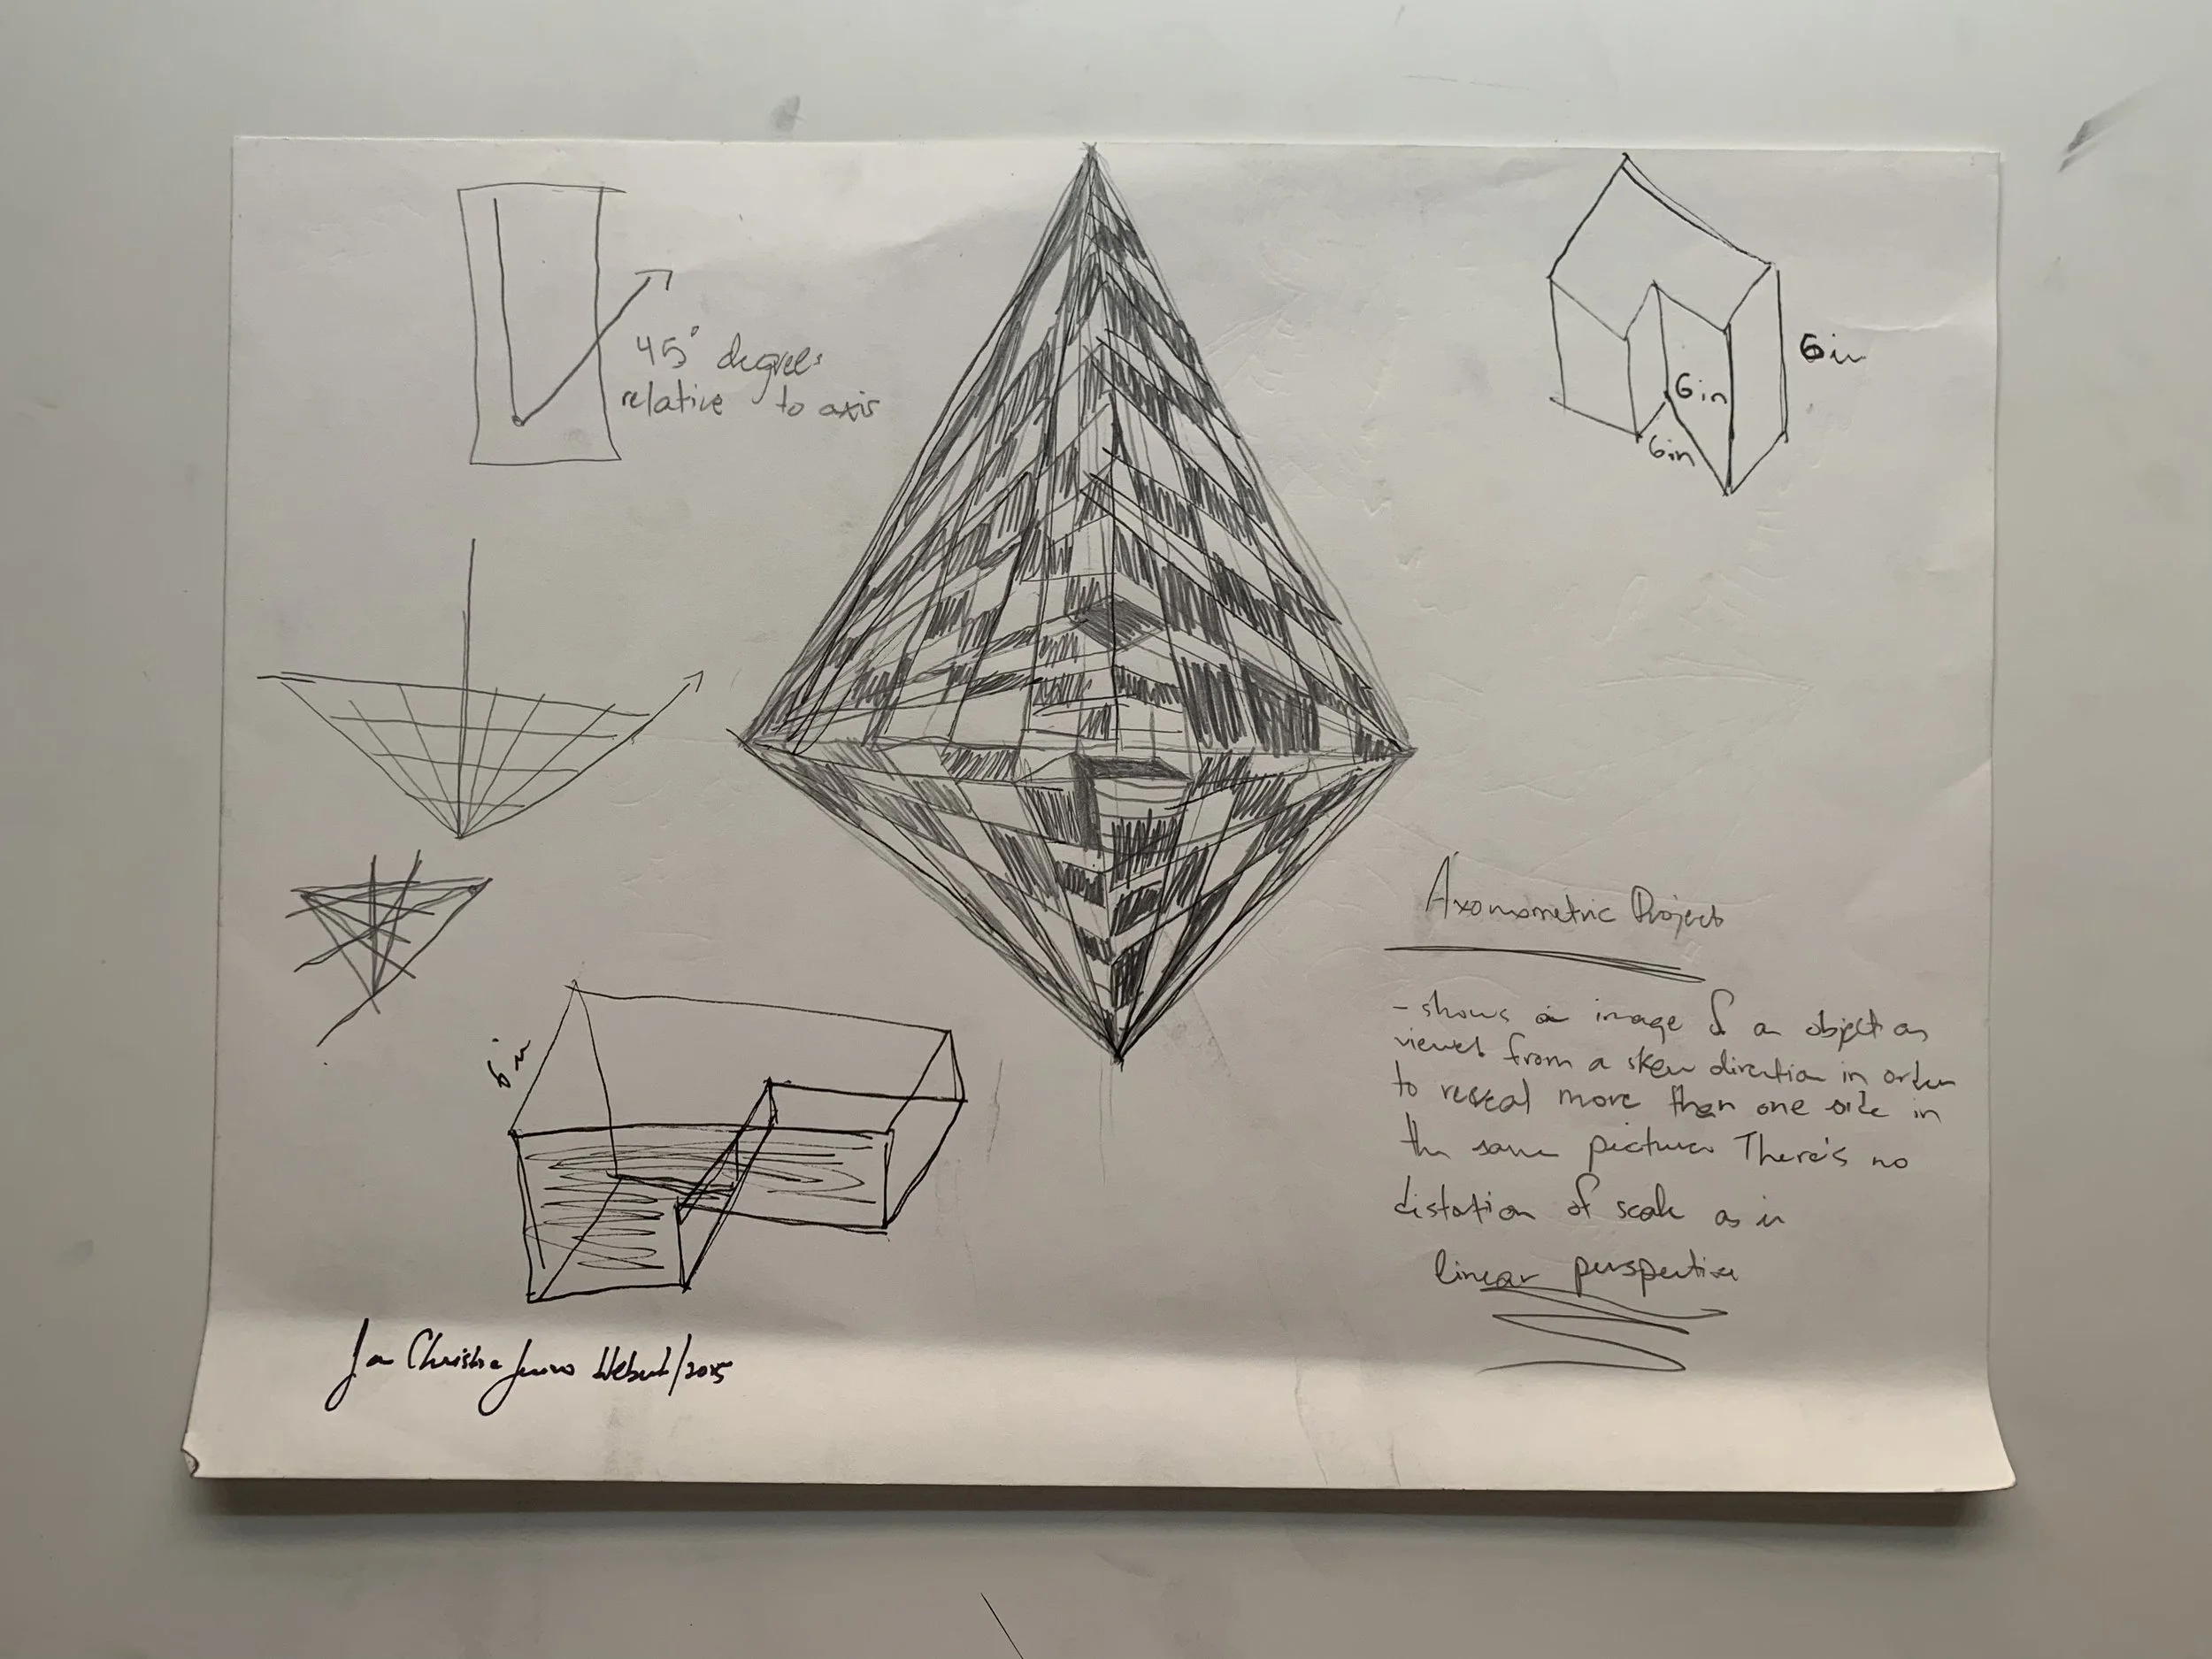 45° degrees
relative to axis
6in
6in
6in
Axonometric Project
- shows an image of an object as
viewed from a skew direction in order
to reveal more than one side in
the same picture There's no
distortion of scale as in
linear perspective
6in
/2015